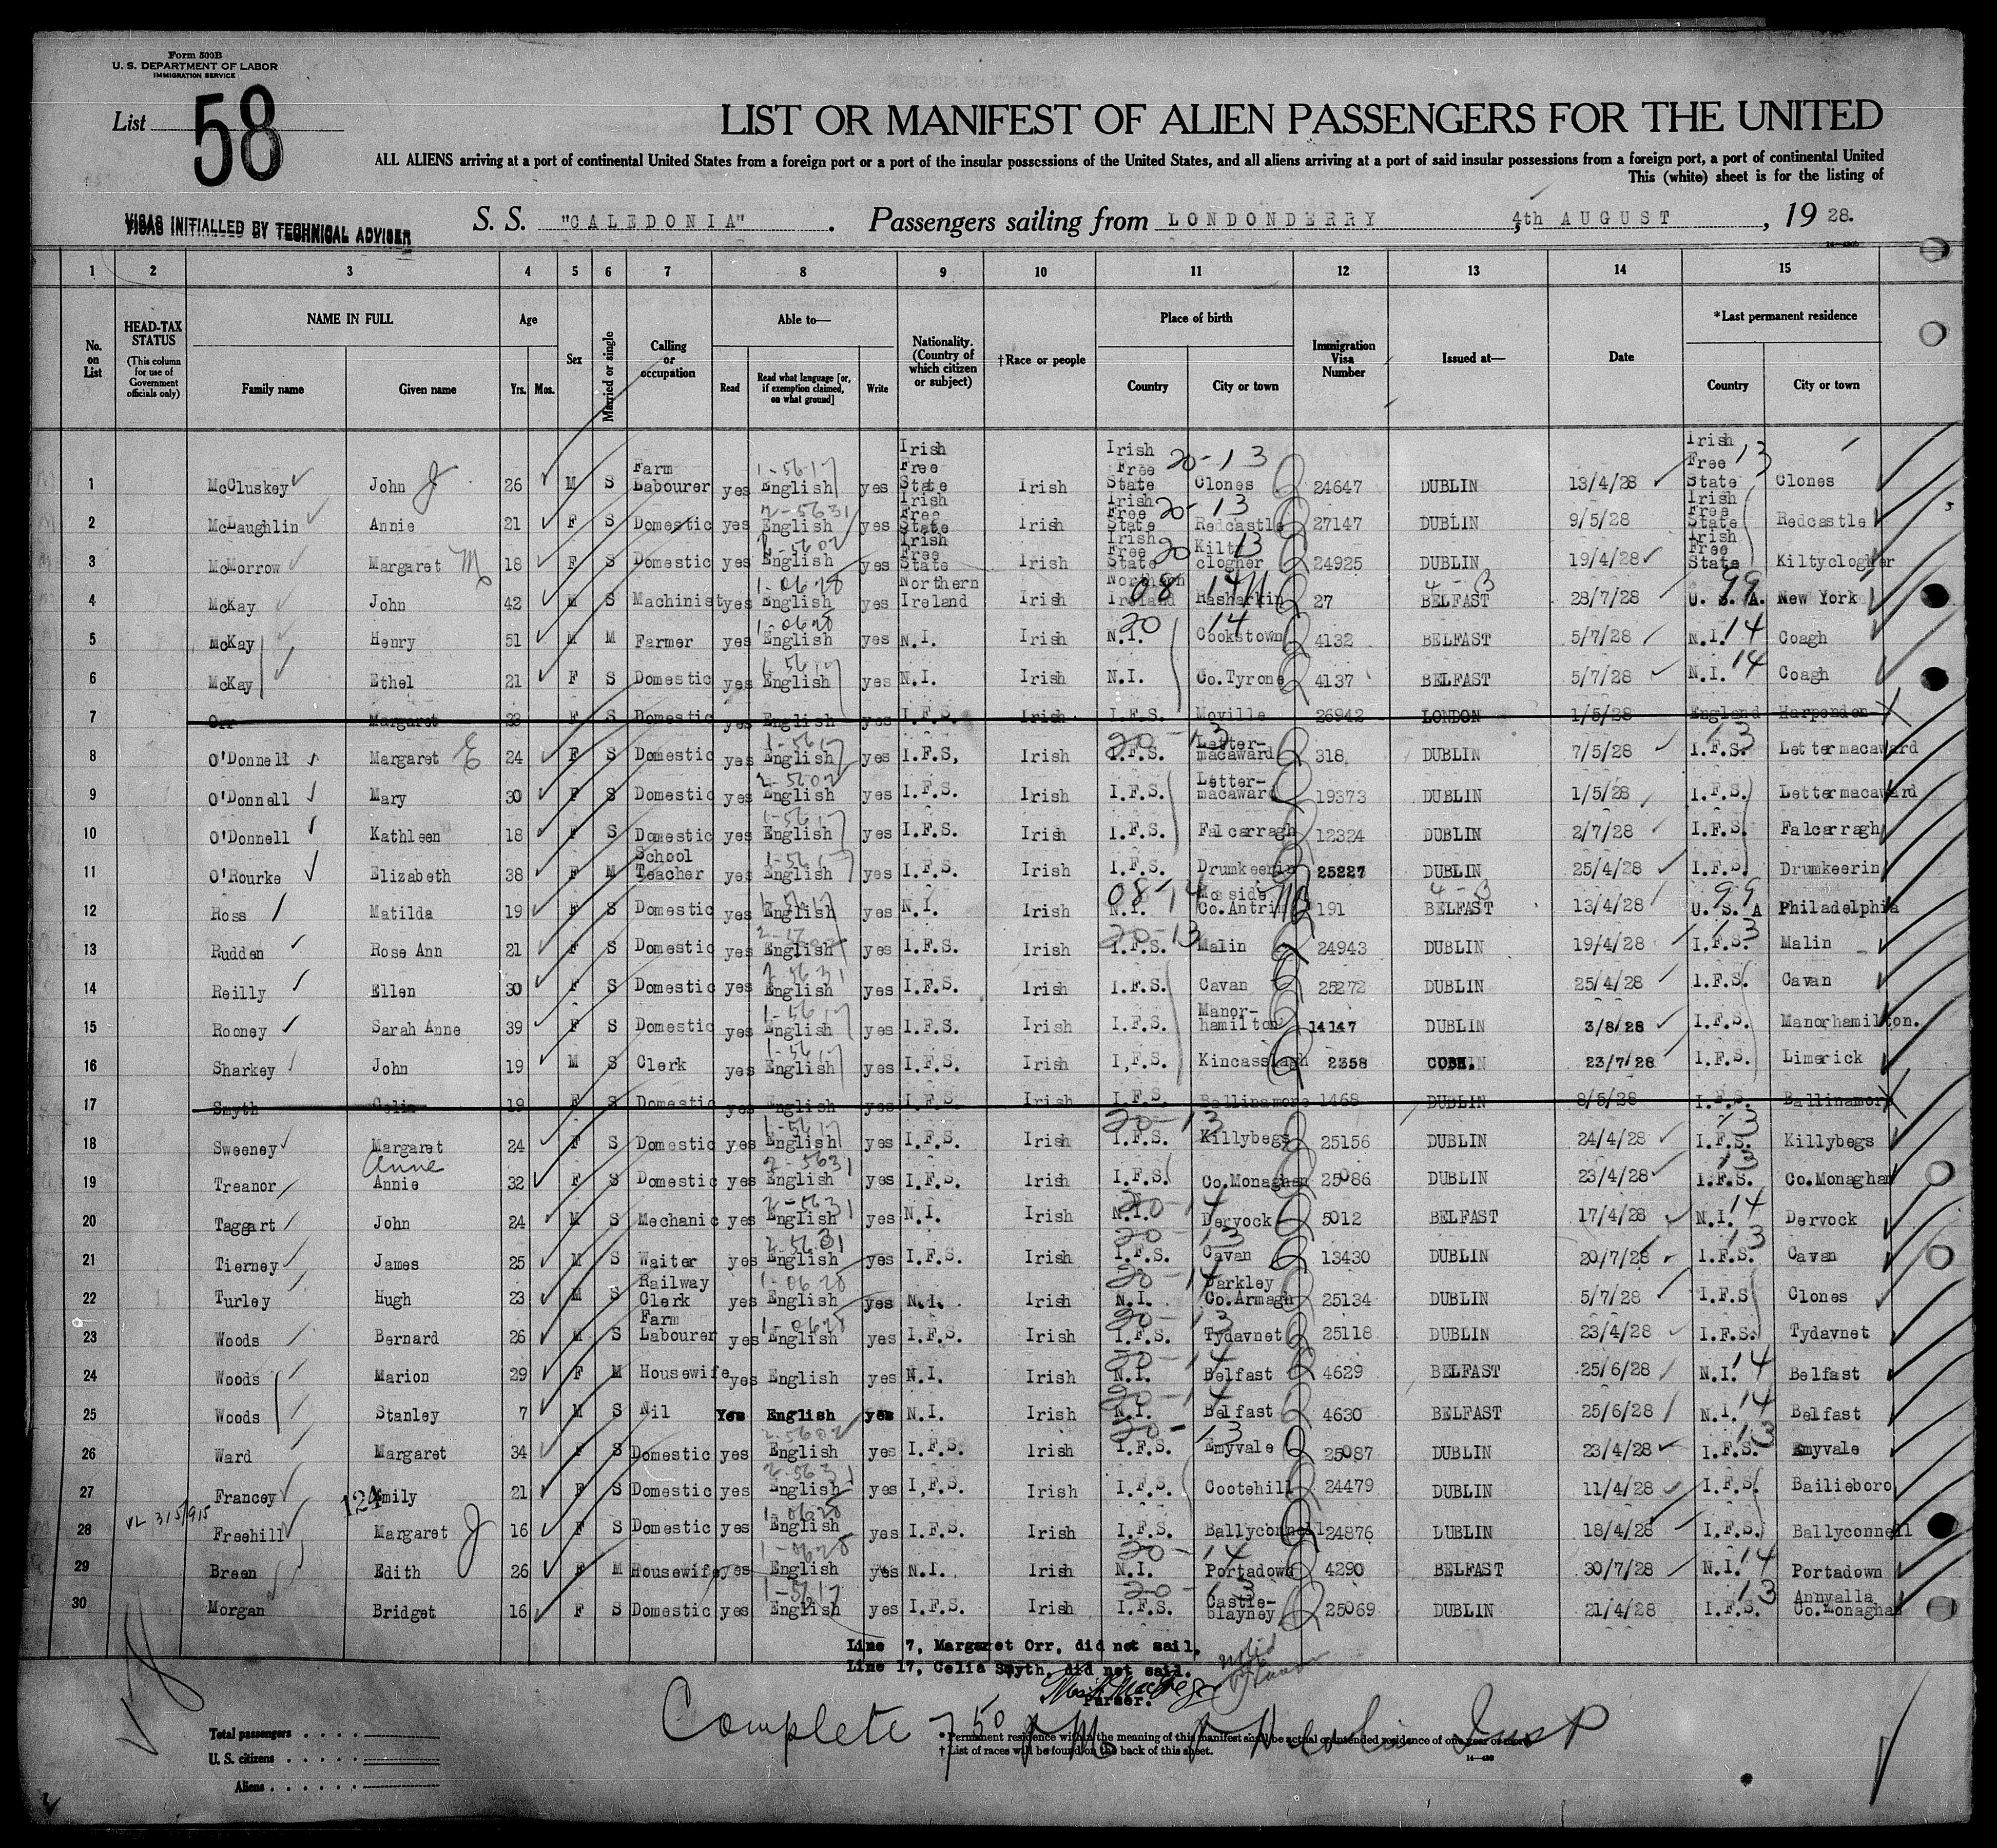 Form 500B
U. S. DEPARTMENT OF LABOR
IMMIGRATION SERVICE
List 58
LIST OR MANIFEST OF ALIEN PASSENGERS FOR THE UNITED
ALL ALIENS arriving at a port of continental United States from a foreign port or a port of the insular possessions of the United States, and all aliens arriving at a port of said insular possessions from a foreign port, a port of continental United
This (white) sheet is for the listing of
VISAS INITIALLED BY TECHNICAL ADVISER
S. S. "CALEDONIA". Passengers sailing from LONDONDERRY, 4th AUGUST, 19 28.
1 2 3 4 5 6 7 8 9 10 11 12 13 14 15
No. on List
HEAD-TAX STATUS (This column for use of Government officials only)
NAME IN FULL Family name Given name
Age Yrs. Mos.
Sex
Married or single
Calling or occupation
Able to— Read Read what language [or, if exemption claimed, on what ground] Write
Nationality. (Country of which citizen or subject)
†Race or people
Place of birth Country City or town
Immigration Visa Number
Issued at—
Date
*Last permanent residence Country City or town
1 McCluskey John J 26 M S Farm Labourer yes English 1-5617 yes Irish Free State Irish Irish Free State 20-13 Clones 24647 DUBLIN 13/4/28 Irish Free State 13 Clones
2 McLaughlin Annie 21 F S Domestic yes English 2-5631 yes Irish Free State Irish Irish Free State 20-13 Redcastle 27147 DUBLIN 9/5/28 Irish Free State Redcastle
3 McMorrow Margaret M 18 F S Domestic yes English 2-5602 yes Irish Free State Irish Irish Free State 20 13 Kiltyclogher 24925 DUBLIN 19/4/28 Irish Free State Kiltyclogher
4 McKay John 42 M S Machinist yes English 1-0628 yes Northern Ireland Irish Northern Ireland 08 14 Rasharkin 27 BELFAST 4-3 28/7/28 U. S. A. 99 New York
5 McKay Henry 51 M M Farmer yes English 1-0628 yes N.I. Irish N.I. 20 14 Cookstown 4132 BELFAST 5/7/28 N.I. 14 Coagh
6 McKay Ethel 21 F S Domestic yes English 1-5617 yes N.I. Irish N.I. Co.Tyrone 4137 BELFAST 5/7/28 N.I. 14 Coagh
7 Orr Margaret 23 F S Domestic yes English yes I.F.S. Irish I.F.S. Moville 26942 LONDON 1/5/28 England Harpenden X
8 O'Donnell Margaret E 24 F S Domestic yes English 1-5617 yes I.F.S, Irish I.F.S. 20-13 Letter-macaward 318 DUBLIN 7/5/28 I.F.S. 13 Lettermacaward
9 O'Donnell Mary 30 F S Domestic yes English 2-5602 yes I.F.S. Irish I.F.S. Letter-macaward 19373 DUBLIN 1/5/28 I.F.S. Lettermacaward
10 O'Donnell Kathleen 18 F S Domestic yes English 1-5617 yes I.F.S. Irish I.F.S. Falcarragh 12324 DUBLIN 2/7/28 I.F.S. Falcarragh
11 O'Rourke Elizabeth 38 F M School Teacher yes English 1-5617 yes I.F.S. Irish I.F.S. Drumkeerin 25227 DUBLIN 25/4/28 I.F.S. Drumkeerin
12 Ross Matilda 19 F S Domestic yes English yes N.I. Irish N.I. 08-14 Mosside Co.Antrim 191 BELFAST 4-3 13/4/28 U. S. A 99 Philadelphia
13 Rudden Rose Ann 21 F S Domestic yes English yes I.F.S. Irish I.F.S. 20-13 Malin 24943 DUBLIN 19/4/28 I.F.S. 13 Malin
14 Reilly Ellen 30 F S Domestic yes English 2-5631 yes I.F.S. Irish I.F.S. Cavan 25272 DUBLIN 25/4/28 I.F.S. Cavan
15 Rooney Sarah Anne 39 F S Domestic yes English 1-5617 yes I.F.S. Irish I.F.S. Manor-hamilton 14147 DUBLIN 3/8/28 I.F.S. Manorhamilton.
16 Sharkey John 19 M S Clerk yes English 1-5617 yes I.F.S. Irish I.F.S. Kincasslagh 2358 COBH. 23/7/28 I.F.S. Limerick
17 Smyth Celia 19 F S Domestic yes English yes I.F.S Irish I.F.S. Ballinamore 1468 DUBLIN 8/5/28 I.F.S. Ballinamore X
18 Sweeney Margaret 24 F S Domestic yes English 1-5617 yes I.F.S. Irish I.F.S. 20-13 Killybegs 25156 DUBLIN 24/4/28 I.F.S. 13 Killybegs
19 Treanor Anne Annie 32 F S Domestic yes English 2-5631 yes I.F.S. Irish I.F.S. Co.Monaghan 25086 DUBLIN 23/4/28 I.F.S. 13 Co.Monaghan
20 Taggart John 24 M S Mechanic yes English 2-5631 yes N.I. Irish N.I. 20-14 Dervock 5012 BELFAST 17/4/28 N.I. 14 Dervock
21 Tierney James 25 M S Waiter yes English 2-5631 yes I.F.S. Irish I.F.S. 20-13 Cavan 13430 DUBLIN 20/7/28 I.F.S. 13 Cavan
22 Turley Hugh 23 M S Railway Clerk yes English 1-0628 yes N.I. Irish N.I. 20-14 Darkley Co.Armagh 25134 DUBLIN 5/7/28 I.F.S Clones
23 Woods Bernard 26 M S Farm Labourer yes English 1-0628 yes I.F.S. Irish I.F.S. 20-13 Tydavnet 25118 DUBLIN 23/4/28 I.F.S. Tydavnet
24 Woods Marion 29 F M Housewife yes English yes N.I. Irish N.I. 20-14 Belfast 4629 BELFAST 25/6/28 N.I. 14 Belfast
25 Woods Stanley 7 M S Nil Yes English yes N.I. Irish N.I. 20-14 Belfast 4630 BELFAST 25/6/28 N.I. 14 Belfast
26 Ward Margaret 34 F S Domestic yes English 2-5602 yes I.F.S. Irish I.F.S. 20-13 Emyvale 25087 DUBLIN 23/4/28 I.F.S. 13 Emyvale
27 Francey Emily 21 F S Domestic yes English 2-5631 yes I.F.S. Irish I.F.S. Cootehill 24479 DUBLIN 11/4/28 I.F.S. Bailieboro
28 VL 315/915 Freehill 124 Margaret J 16 F S Domestic yes English 1-0628 yes I.F.S. Irish I.F.S. Ballyconnell 24876 DUBLIN 18/4/28 I.F.S. Ballyconnell
29 Breen Edith 26 F M Housewife yes English 1-0628 yes N.I. Irish N.I. 20-14 Portadown 4290 BELFAST 30/7/28 N.I. 14 Portadown
30 Morgan Bridget 16 F S Domestic yes English 1-5617 yes I.F.S. Irish I.F.S. 20-13 Castle-blayney 25069 DUBLIN 21/4/28 I.F.S. 13 Annyalla Co.Monaghan
Line 7, Margaret Orr, did not sail.
Line 17, Celia Smyth, did not sail.
Purser.
Complete 7 50 PM Insp
Total passengers
U. S. citizens
Aliens
* Permanent residence within the meaning of this manifest shall be actual or intended residence of one year or more.
† List of races will be found on the back of this sheet.